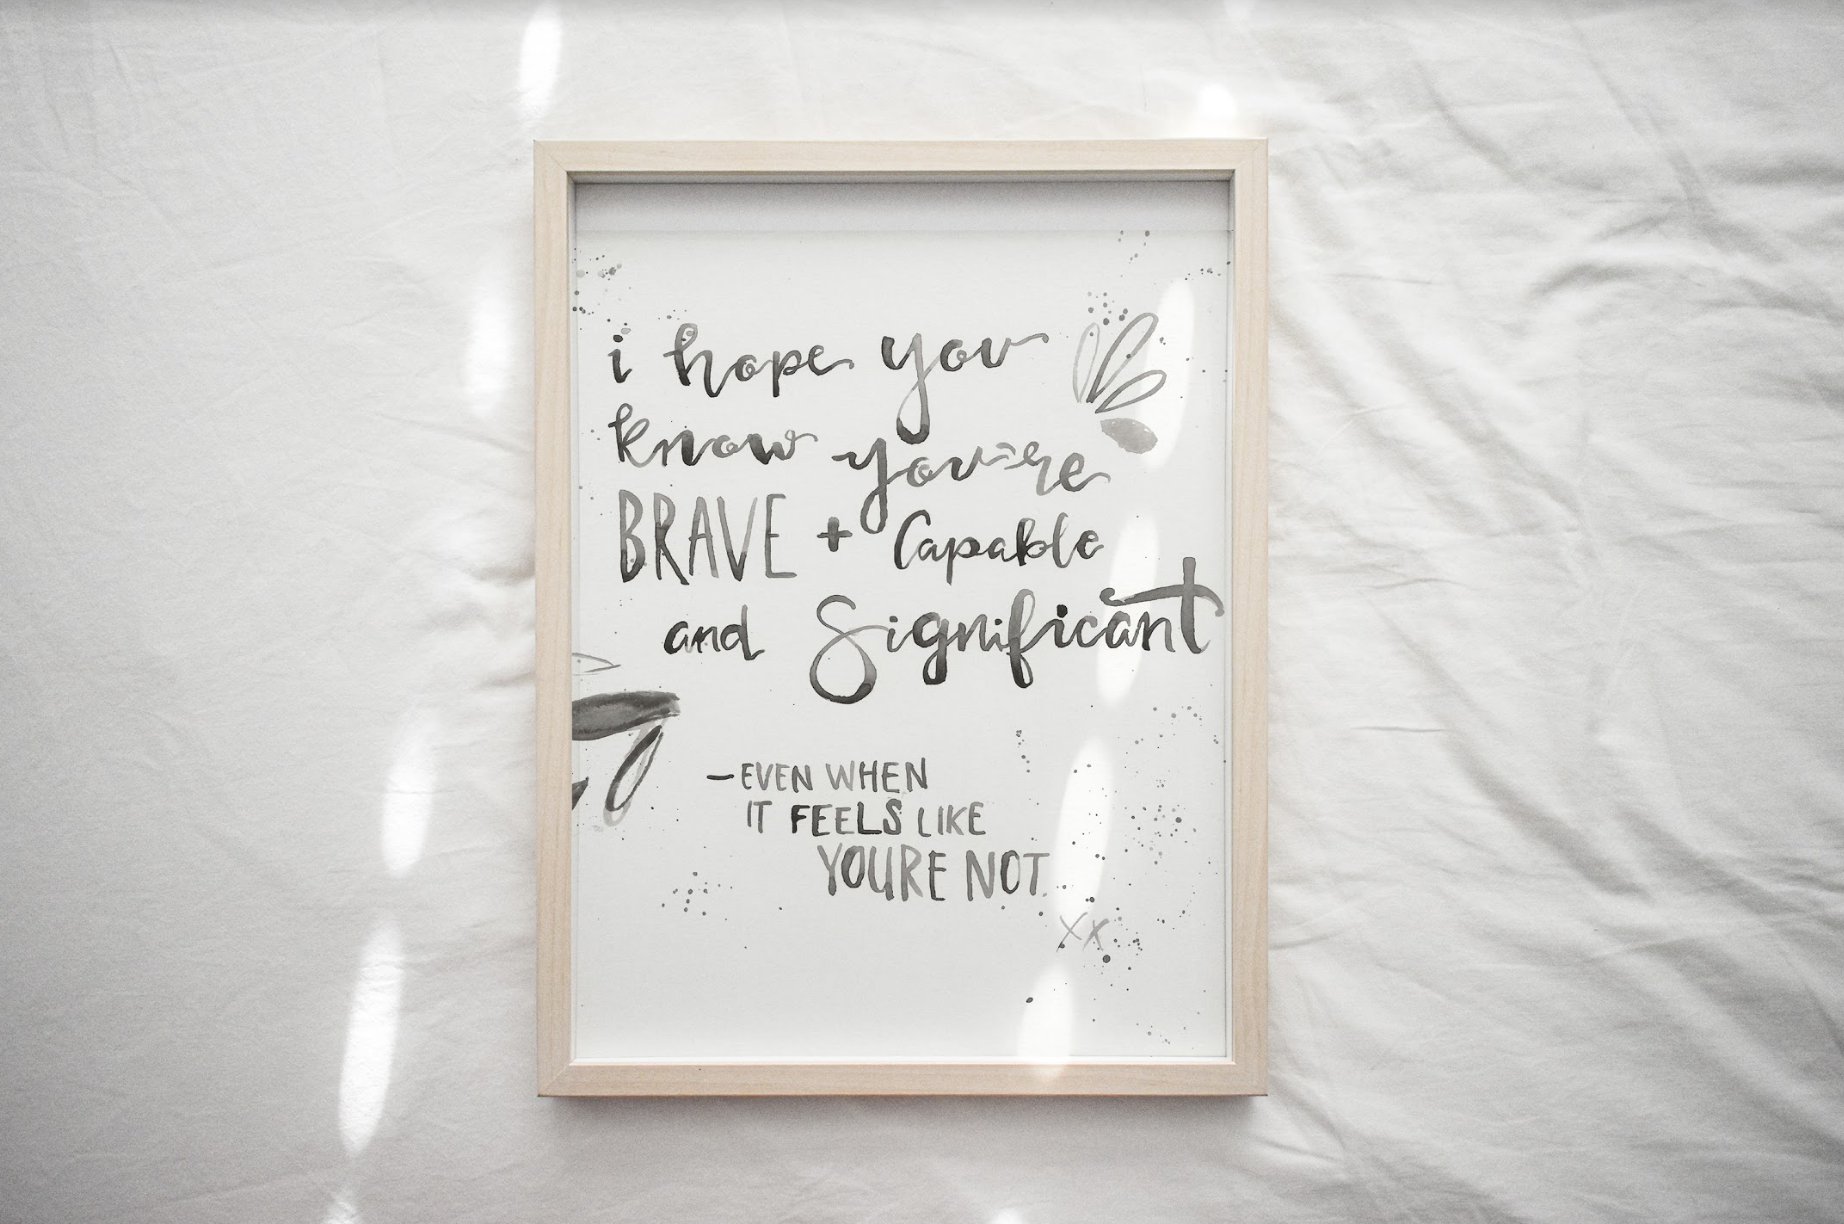 i hope you
know you're
BRAVE + Capable
and Significant
—EVEN WHEN
IT FEELS LIKE
YOURE NOT.
xx